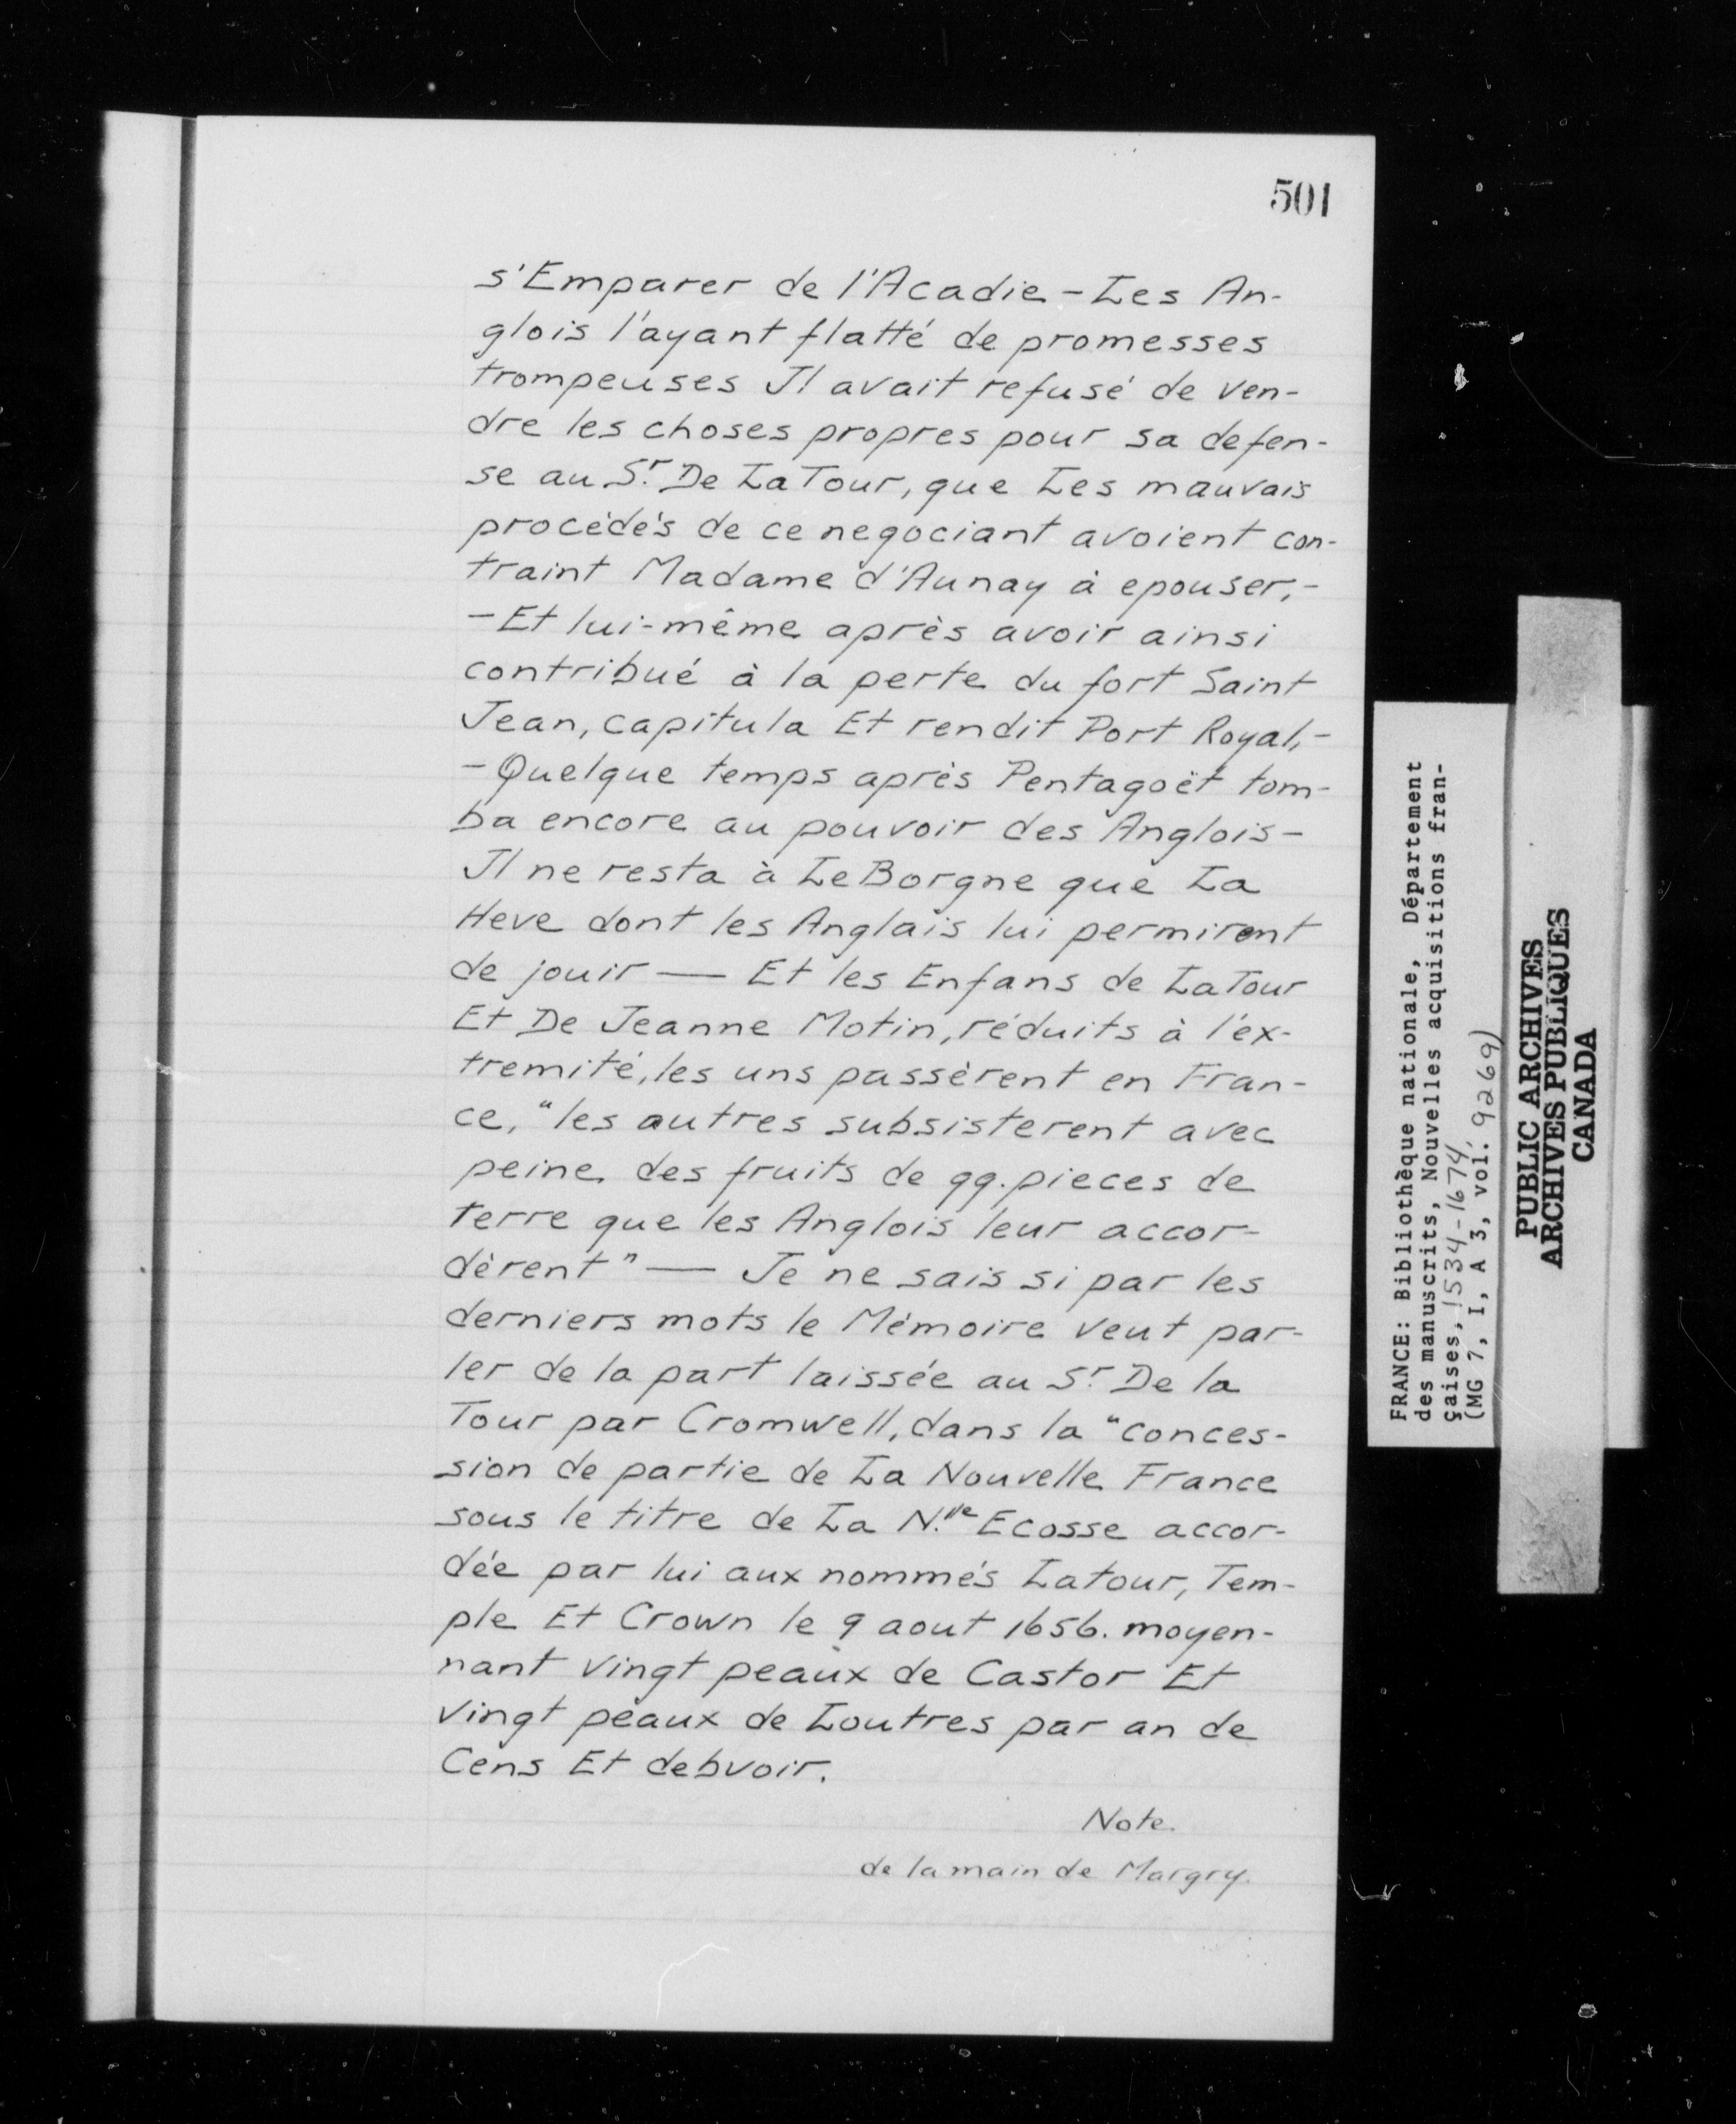 501
s'Emparer de l'Acadie - Les An-
glois l'ayant flatté de promesses
trompeuses Il avait refusé de ven-
dre les choses propres pour sa defen-
se au Sr. De La Tour, que Les mauvais
procédés de ce negociant avoient con-
traint Madame d'Aunay à epouser, -
- Et lui-même après avoir ainsi
contribué à la perte du fort Saint
Jean, capitula Et rendit Port Royal, -
- Quelque temps après Pentagoët tom-
ba encore au pouvoir des Anglois -
Il ne resta à Le Borgne que La
Heve dont les Anglais lui permirent
de jouir — Et les Enfans de La Tour
Et De Jeanne Motin, réduits à l'ex-
tremité, les uns passèrent en Fran-
ce, "les autres subsisterent avec
peine des fruits de qq. pieces de
terre que les Anglois leur accor-
dèrent" — Je ne sais si par les
derniers mots le Mémoire veut par-
ler de la part laissée au Sr. De la
Tour par Cromwell, dans la "conces-
sion de partie de La Nouvelle France
sous le titre de La N.lle Ecosse accor-
dée par lui aux nommés Latour, Tem-
ple Et Crown le 9 aout 1656. moyen-
nant vingt peaux de Castor Et
vingt peaux de Loutres par an de
Cens Et debvoir.
Note.
de la main de Margry.
FRANCE: Bibliothèque nationale, Département
des manuscrits, Nouvelles acquisitions fran-
çaises, 1534-1674,
(MG 7, I, A 3, vol. 9269)
PUBLIC ARCHIVES
ARCHIVES PUBLIQUES
CANADA